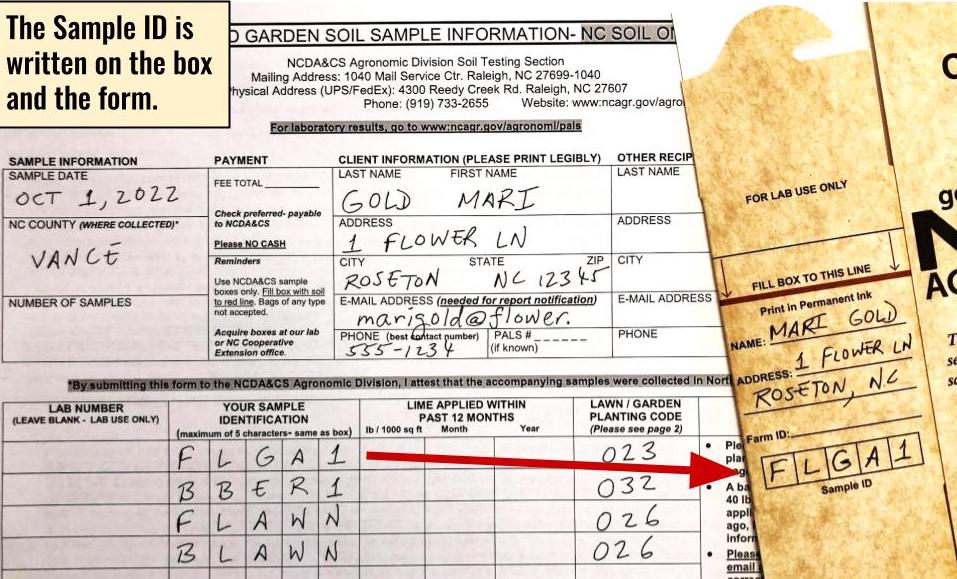 The Sample ID is
written on the box
and the form.
D GARDEN SOIL SAMPLE INFORMATION- NC SOIL
NCDA&CS Agronomic Division Soil Testing Section
Mailing Address: 1040 Mail Service Ctr. Raleigh, NC 27699-1040
hysical Address (UPS/FedEx): 4300 Reedy Creek Rd. Raleigh, NC 27607
Phone: (919) 733-2655 Website: www:ncagr.gov/agro
For laboratory results, go to www:ncagr.gov/agronomi/pals
SAMPLE INFORMATION
SAMPLE DATE
OCT 1, 2022
NC COUNTY (WHERE COLLECTED)*
VANCE
NUMBER OF SAMPLES
PAYMENT
FEE TOTAL
Check preferred- payable
to NCDA&CS
Please NO CASH
Reminders
Use NCDA&CS sample
boxes only. Fill box with soil
to red line. Bags of any type
not accepted.
Acquire boxes at our lab
or NC Cooperative
Extension office.
CLIENT INFORMATION (PLEASE PRINT LEGIBLY)
LAST NAME FIRST NAME
GOLD MARI
ADDRESS
1 FLOWER LN
CITY STATE ZIP
ROSETON NC 12345
E-MAIL ADDRESS (needed for report notification)
marigold@flower.
PHONE (best contact number) PALS #
555-1234 (if known)
OTHER RECIP
LAST NAME
ADDRESS
CITY
E-MAIL ADDRESS
PHONE
*By submitting this form to the NCDA&CS Agronomic Division, I attest that the accompanying samples were collected in Nort
LAB NUMBER
(LEAVE BLANK - LAB USE ONLY)
YOUR SAMPLE
IDENTIFICATION
(maximum of 5 characters- same as box)
LIME APPLIED WITHIN
PAST 12 MONTHS
lb / 1000 sq ft Month Year
LAWN / GARDEN
PLANTING CODE
(Please see page 2)
F L G A 1 023
B B E R 1 032
F L A W N 026
B L A W N 026
Ple
plan
A ba
40 lb
appli
ago,
inforn
Please
email
FOR LAB USE ONLY
FILL BOX TO THIS LINE
Print in Permanent Ink
NAME: MARI GOLD
ADDRESS: 1 FLOWER LN
ROSETON, N.C
Farm ID:
F L G A 1
Sample ID